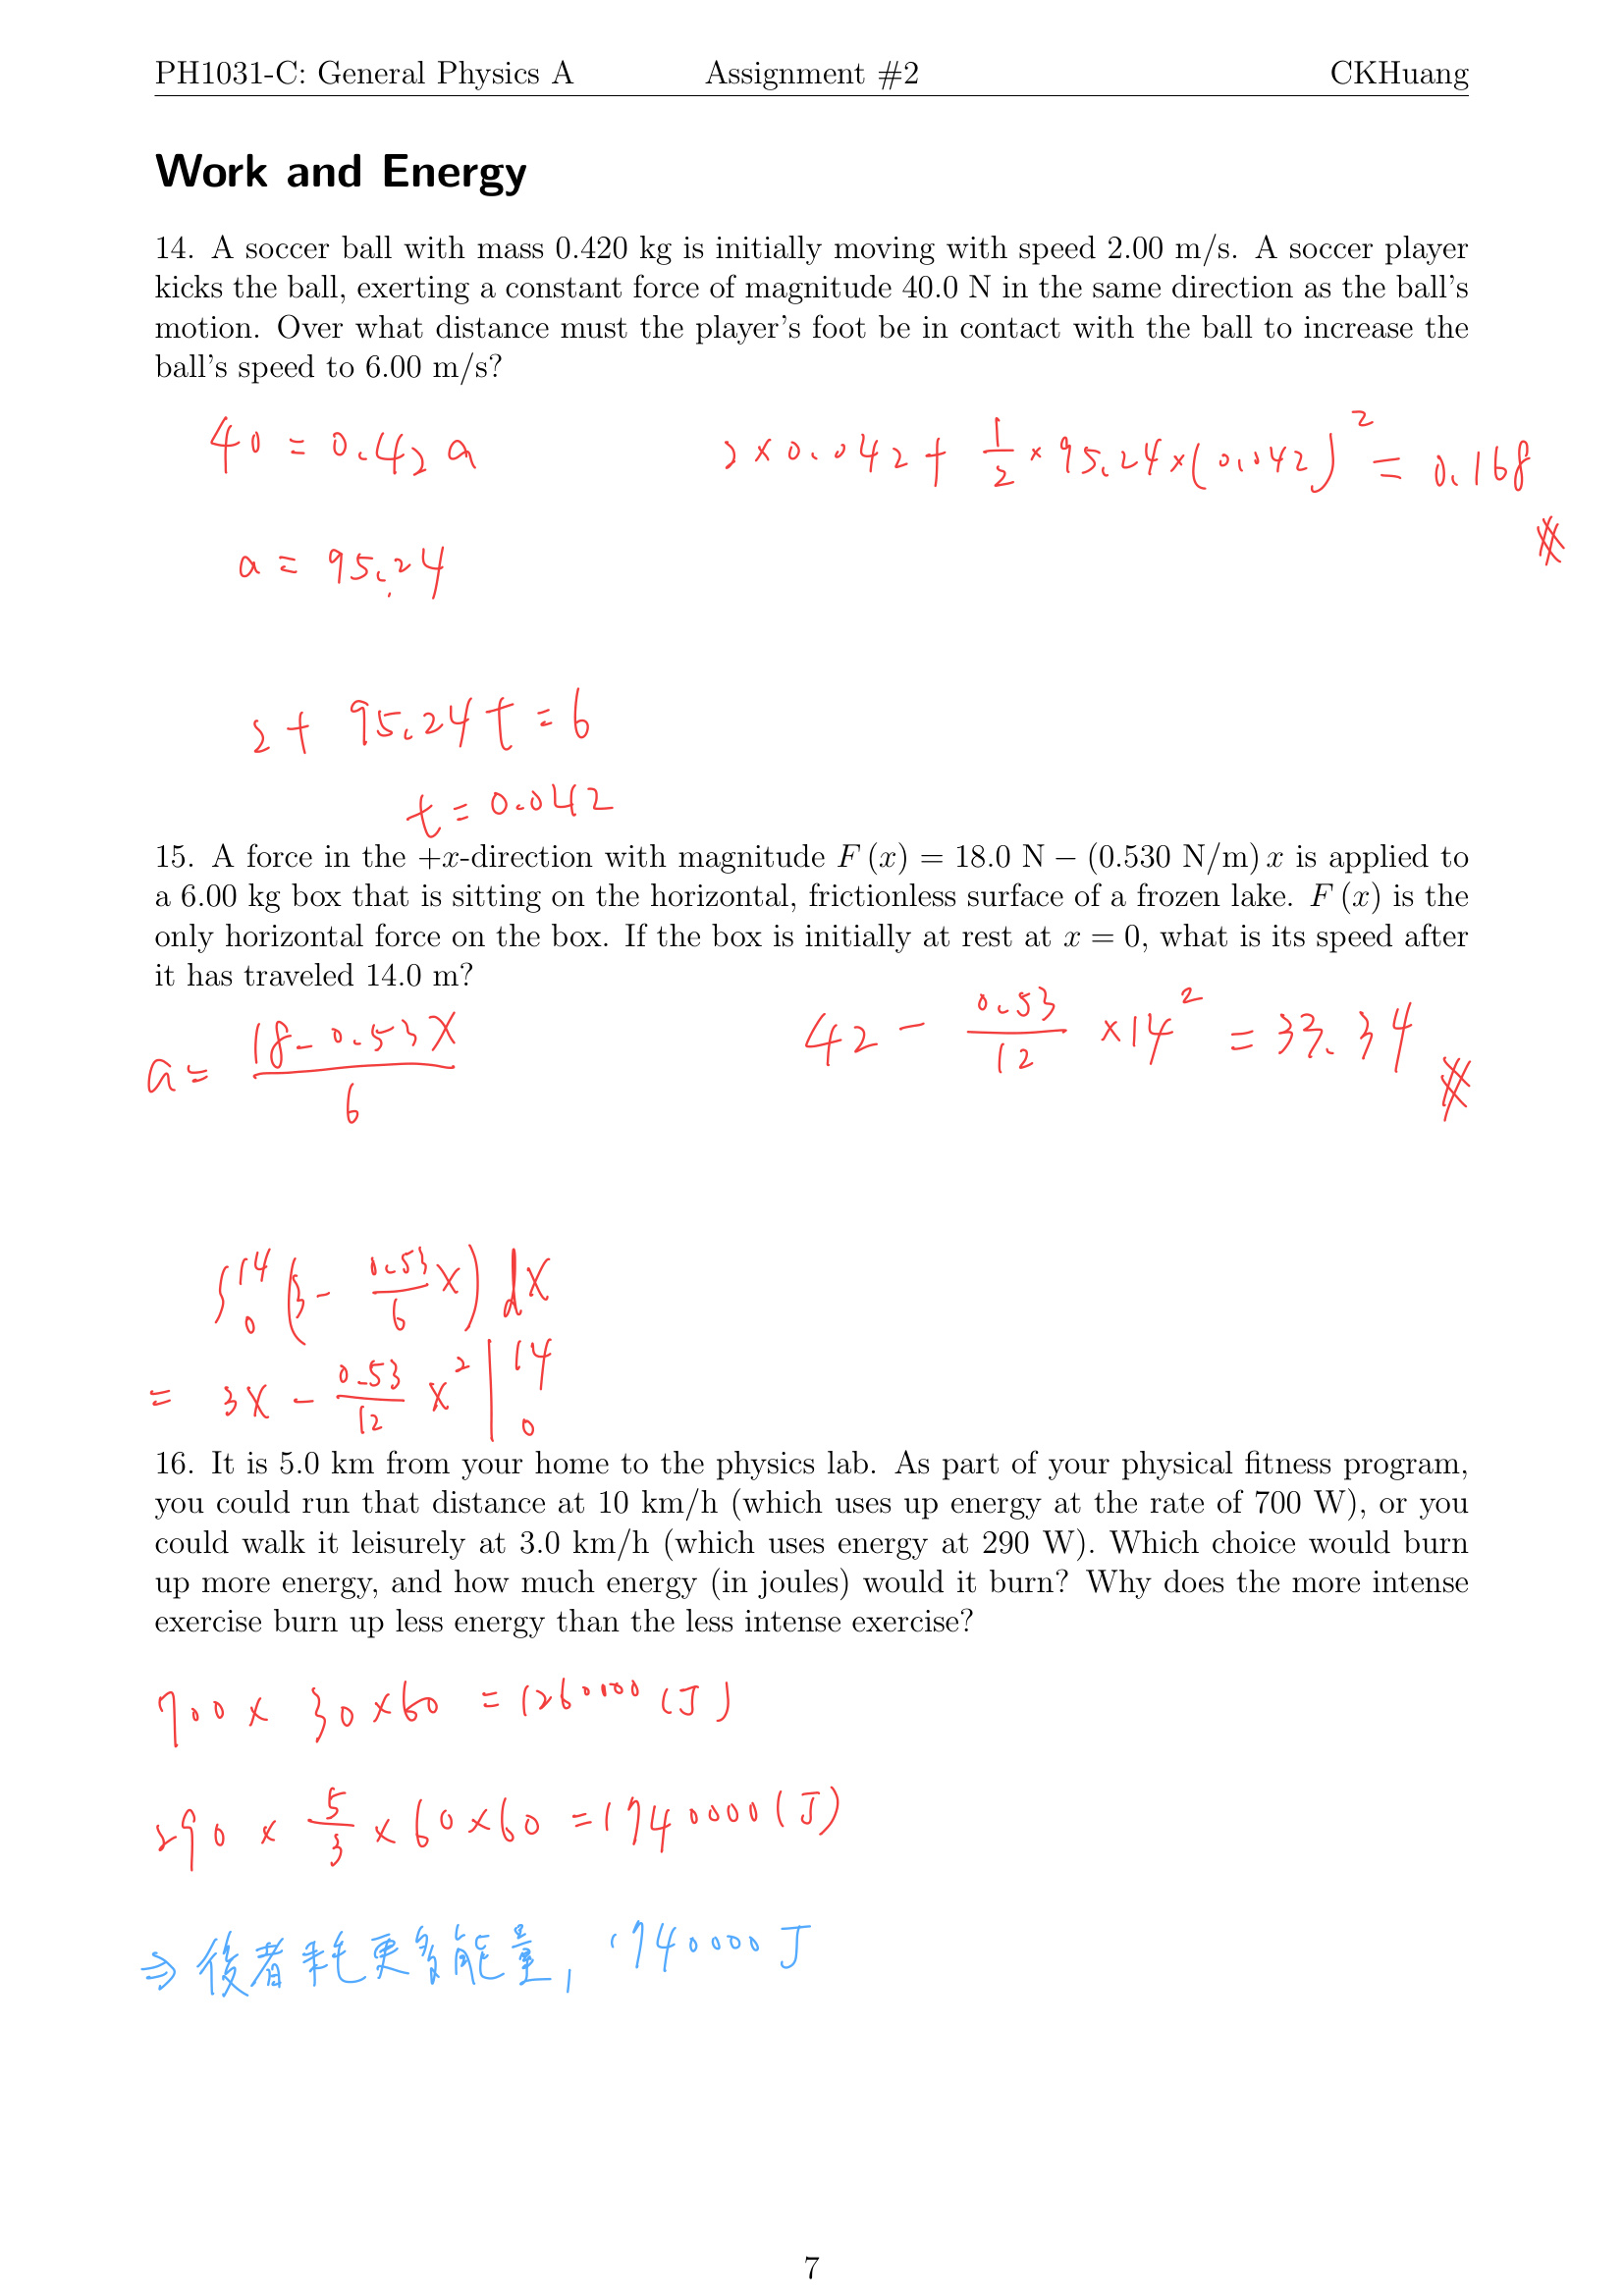 PH1031-C: General Physics A Assignment #2 CKHuang
Work and Energy
14. A soccer ball with mass 0.420 kg is initially moving with speed 2.00 m/s. A soccer player
kicks the ball, exerting a constant force of magnitude 40.0 N in the same direction as the ball's
motion. Over what distance must the player's foot be in contact with the ball to increase the
ball's speed to 6.00 m/s?
40 = 0.42a
a = 95.24
2 + 95.24t = 6
t = 0.042
2 × 0.042 + 1/2 × 95.24 × (0.042)² = 0.168
15. A force in the +x-direction with magnitude F (x) = 18.0 N − (0.530 N/m) x is applied to
a 6.00 kg box that is sitting on the horizontal, frictionless surface of a frozen lake. F (x) is the
only horizontal force on the box. If the box is initially at rest at x = 0, what is its speed after
it has traveled 14.0 m?
a = (18 - 0.53x)/6
∫₀¹⁴ (3 - 0.53/6 x) dx
= 3x - 0.53/12 x² |₀¹⁴
42 - 0.53/12 × 14² = 33.34
16. It is 5.0 km from your home to the physics lab. As part of your physical fitness program,
you could run that distance at 10 km/h (which uses up energy at the rate of 700 W), or you
could walk it leisurely at 3.0 km/h (which uses energy at 290 W). Which choice would burn
up more energy, and how much energy (in joules) would it burn? Why does the more intense
exercise burn up less energy than the less intense exercise?
700 × 30 × 60 = 1260000 (J)
290 × 5/3 × 60 × 60 = 1740000 (J)
⇒ 後者耗更多能量, 1740000 J
7